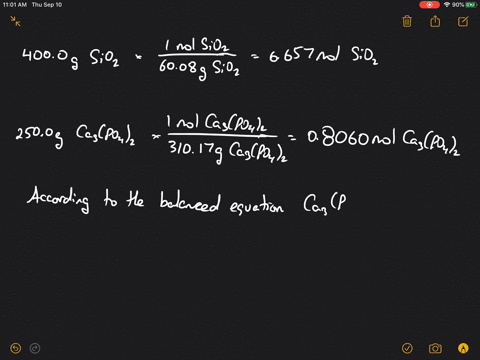 11:01 AM Thu Sep 10
90%
400.0g SiO₂ × 1 mol SiO₂ / 60.08g SiO₂ = 6.657 mol SiO₂
250.0g Ca₃(PO₄)₂ × 1 mol Ca₃(PO₄)₂ / 310.17g Ca₃(PO₄)₂ = 0.8060 mol Ca₃(PO₄)₂
According to the balanced equation Ca₃(P